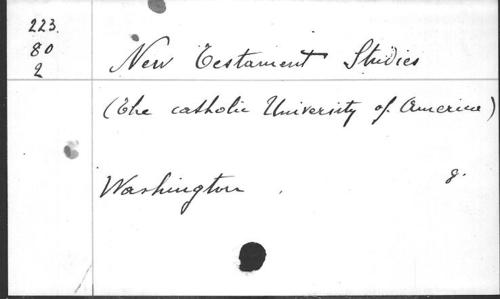 223.
80
2
New Testament Studies
(The catholic University of America)
Washington . 8.